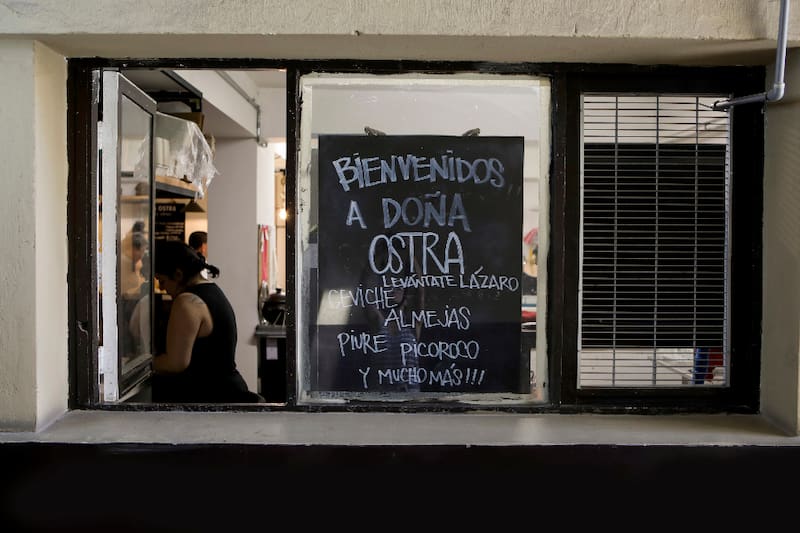 BIENVENIDOS
A DOÑA
OSTRA
LEVÁNTATE LÁZARO
CEVICHE
ALMEJAS
PIURE PICOROCO
Y MUCHO MAS!!!
OSTRA